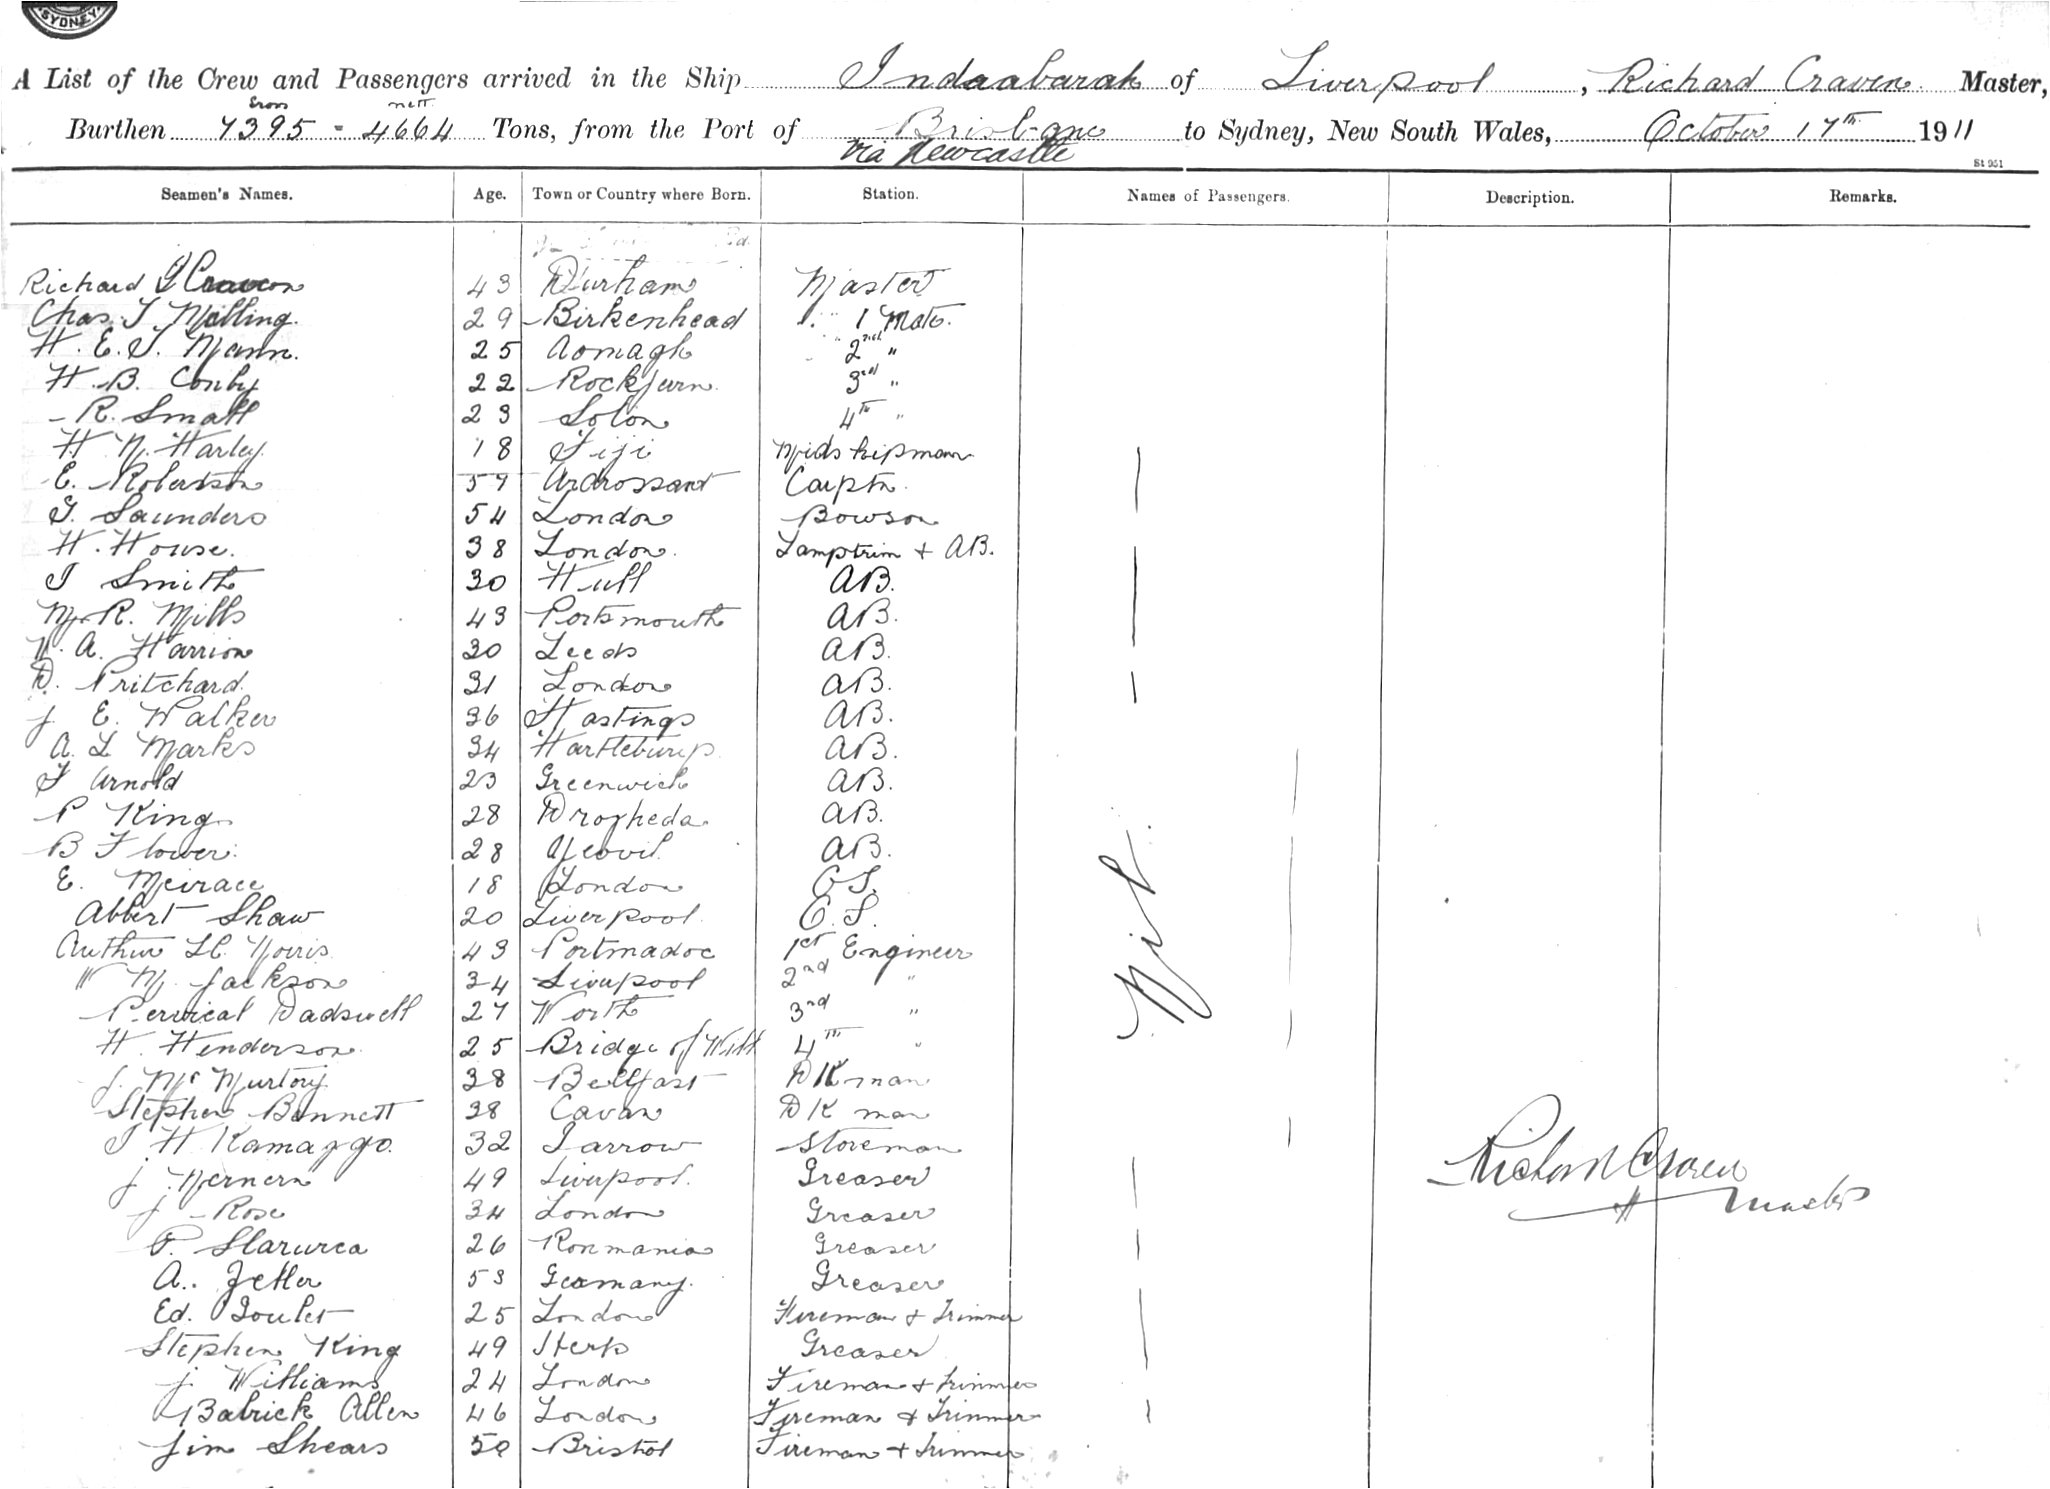 SYDNEY
A List of the Crew and Passengers arrived in the Ship Indaabarah of Liverpool, Richard Craven Master,
Burthen gross 7395 - nett 4664 Tons, from the Port of Brisbane to Sydney, New South Wales, October 17th 1911
via Newcastle
St 951
Seamen's Names. Age. Town or Country where Born. Station. Names of Passengers. Description. Remarks.
Richard Craven 43 Durham Master
Chas. T Melling. 29 Birkenhead 1 Mate.
H. E. T. Mann. 25 Aomagh 2nd "
H. B. Conby 22 Rockfern 3rd "
R. Small 23 Solon 4th "
H. N. Harley. 18 Fiji Midshipman
E. Robertson 57 Ardrossant Carptn.
G. Saunders 54 London Bowson
H. House. 38 London. Lamptrim + AB.
J Smith 30 Hull AB.
M. R. Mills 43 Portsmouth AB.
W. A. Harrion 30 Leeds AB.
D. Pritchard. 31 London AB.
J E. Walker 36 Hastings AB.
A. L Marks 34 AB.
F Arnold 23 Greenwich AB.
P King 28 Drogheda. AB.
B Flower. 28 Yeovil. AB.
E. 18 London
Abbert Shaw 20 Liverpool. O.S.
Arthur Ll. Norris 43 Portmadoc 1st Engineer
W M. Jackson 34 Liverpool 2nd "
Pervical Dadswell 27 Worth 3rd "
H. Henderson 25 Bridge of 4th "
J. McMurtory. 38 Bellfast DKman
Stephen Bennett 38 Cavan DK man
J. H. Kamaggo. 32 Jarrow Storeman
J. 49 Liverpool. Greaser
J Rose 34 London Greaser
P. Slarurca 26 Roumania Greaser
A. Zetler 53 Geamany. Greaser
Ed. Goulet 25 London Fireman + Trimmer
Stephen King 49 Herts Greaser
J. Williams 24 London Fireman + Trimmer
Batrick Allen 46 London Fireman + Trimmer
Jim Shears 50 Bristol Fireman + Trimmer
Nil
Richard Craven
Master